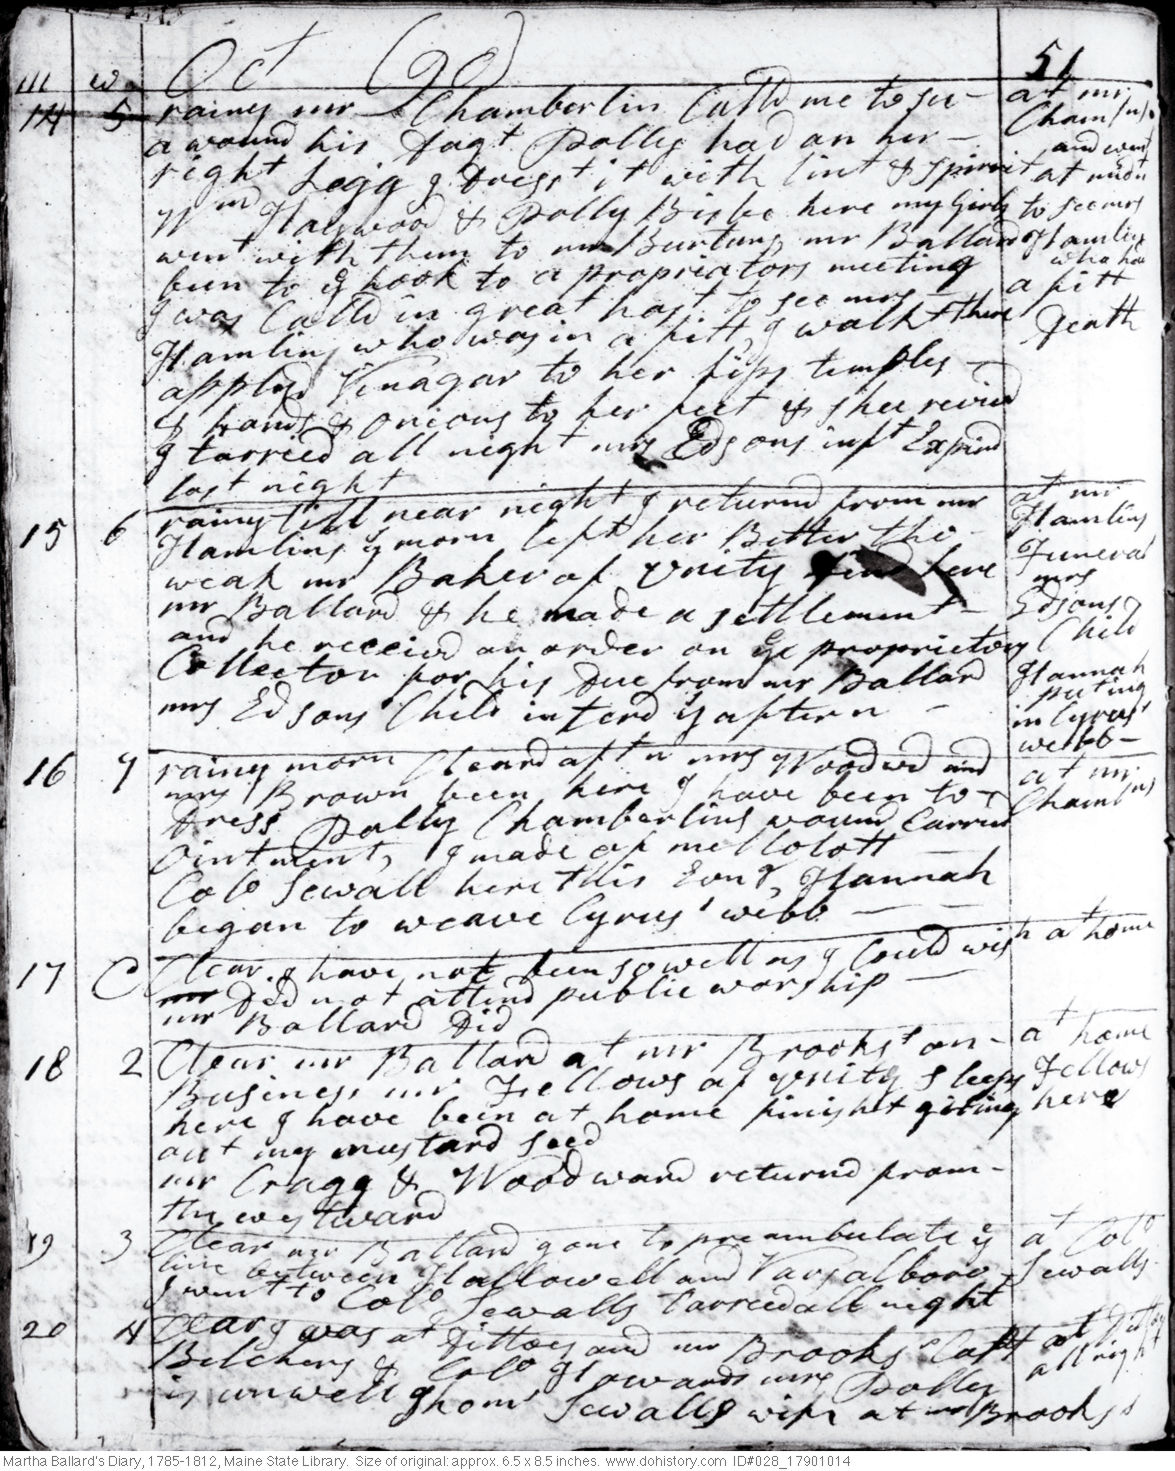 m w Oct (90) 51
14 5 rainy mr Chamberlin Calld me to see at mr
a wound his Dagt Polly had on her Chamlns
right Legg I Drest it with lint & spirrit and went at midn
Wm Haywood & Polly Bisbe here my Girls to see mrs
went with them to mr Burtuns, mr Ballard Hamlin
been to ye hook to a propriators meeting who had
I was Calld in great hast to see mrs a fitt
Hamlins who was in a fitt, I walkt there Death
applyd Vinagar to her lips temples
& hands & onions to her feet & shee revivd
I tarried all night mrs Edsons inft Expird
last night
15 6 rainy till near night I returnd from mr at mr
Hamlins ye morn left her Better tho Hamlins
weak mr Baker of Unity here Funeral
mr Ballard & he made a settlement mrs
and he receivd an order on ye proprietory Edsons Child
Collector for his Due from mr Ballard Hannah
mrs Edsons Child interd ye aftern puting in Cyrus'
webb
16 7 rainy morn Cleard aftn mrs Woodwd and at mr
mrs Brown been here I have been to Chamlns
Dress Polly Chamberlins wound Carried
ointment, I made of mellolott
Colo Sewall here this Evng, Hannah
began to weave Cyrus' webb
17 C Clear. I have not been so well as I Could wish at home
Did not attend public worship
mr Ballard Did
18 2 Clear mr Ballard at mr Brooks' on at home
Business mr Fellows of Unity sleeps Fellows
here I have been at home finisht giting here
out my mustard seed
mr Cragg & Woodward returnd from
the westward
19 3 Clear mr Ballard gone to preambulate ye at Colo
line between Hallowell and Vassalboro Sewalls
I went to Colo Sewalls tarried all night
20 4 Clear I was at Dittoes and mr Brooks Capt at Ditto
Belchers & Colo Howards mrs Polley all night
is unwell Thoms Sewalls wife at Brooks's
Martha Ballard's Diary, 1785-1812, Maine State Library. Size of original: approx. 6.5 x 8.5 inches. www.dohistory.com ID#028_17901014